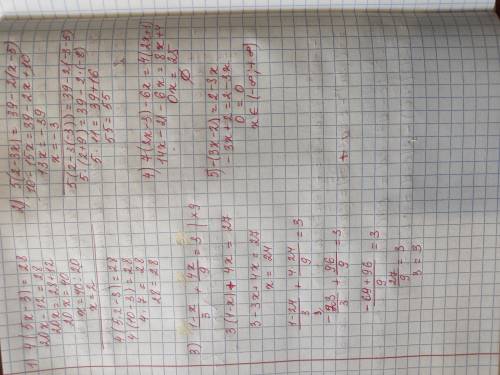 1) 4(5x-3)=28
20x-12=28
20x=28+12
20x=40
x=40:20
x=2
4(5·2-3)=28
4(10-3)=28
4·7=28
28=28
3) 1-x/3 + 4x/9 = 3 | ×9
3(1-x)+4x=27
3-3x+4x=27
x=24
1-24/3 + 4·24/9 = 3
-23/3 + 96/9 = 3
-69+96/9 = 3
27/9 = 3
3=3
2) 5(2-3x)=39-2(x-5)
10-15x=39-2x+10
13x=-39
x=-3
5(2-3(-3))=39-2(-3-5)
5·(2+9)=39-2·(-8)
5·11=39+16
55=55
4) 7(2x-3)-6x=4(2x+1)
14x-21-6x=8x+4
0x=25
∅
5) -(3x-2)=2-3x
-3x+2=2-3x
0=0
x∈(-∞;+∞)